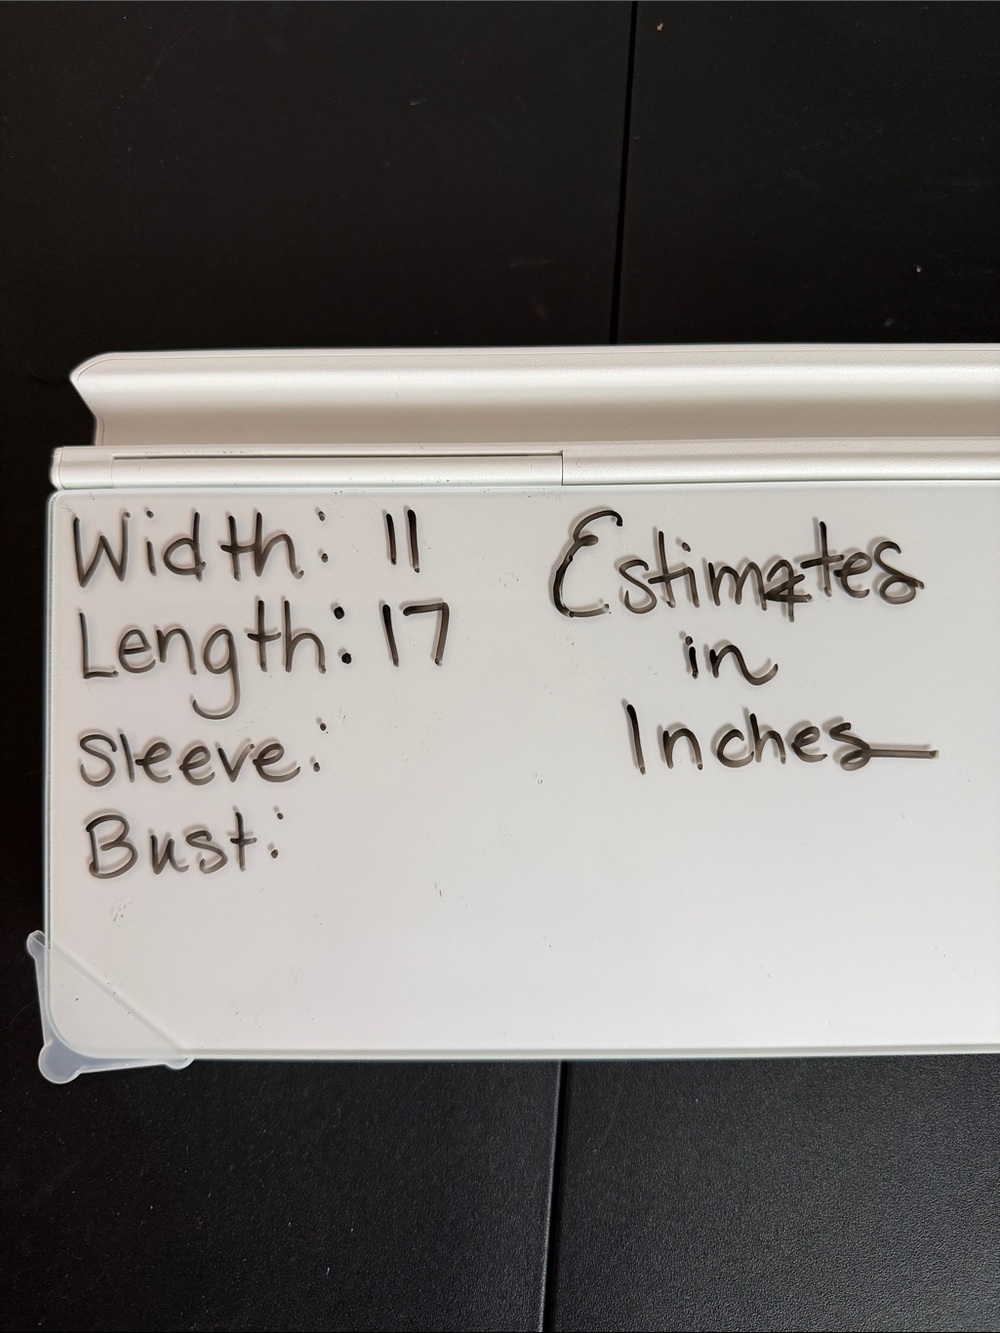 Width: 11
Length: 17
Sleeve:
Bust:
Estimates
in
Inches